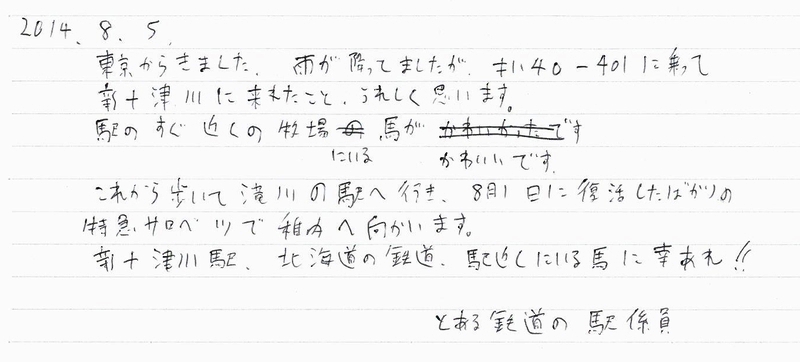 2014. 8. 5.
東京からきました。雨が降ってましたが、キハ40-401に乗って
新十津川に来れたこと、うれしく思います。
駅のすぐ近くの牧場の馬がかわいかったです
にいる かわいいです。
これから歩いて滝川の駅へ行き、8月1日に復活したばかりの
特急サロベツで稚内へ向かいます。
新十津川駅、北海道の鉄道、駅近くにいる馬に幸あれ!!
とある鉄道の駅係員